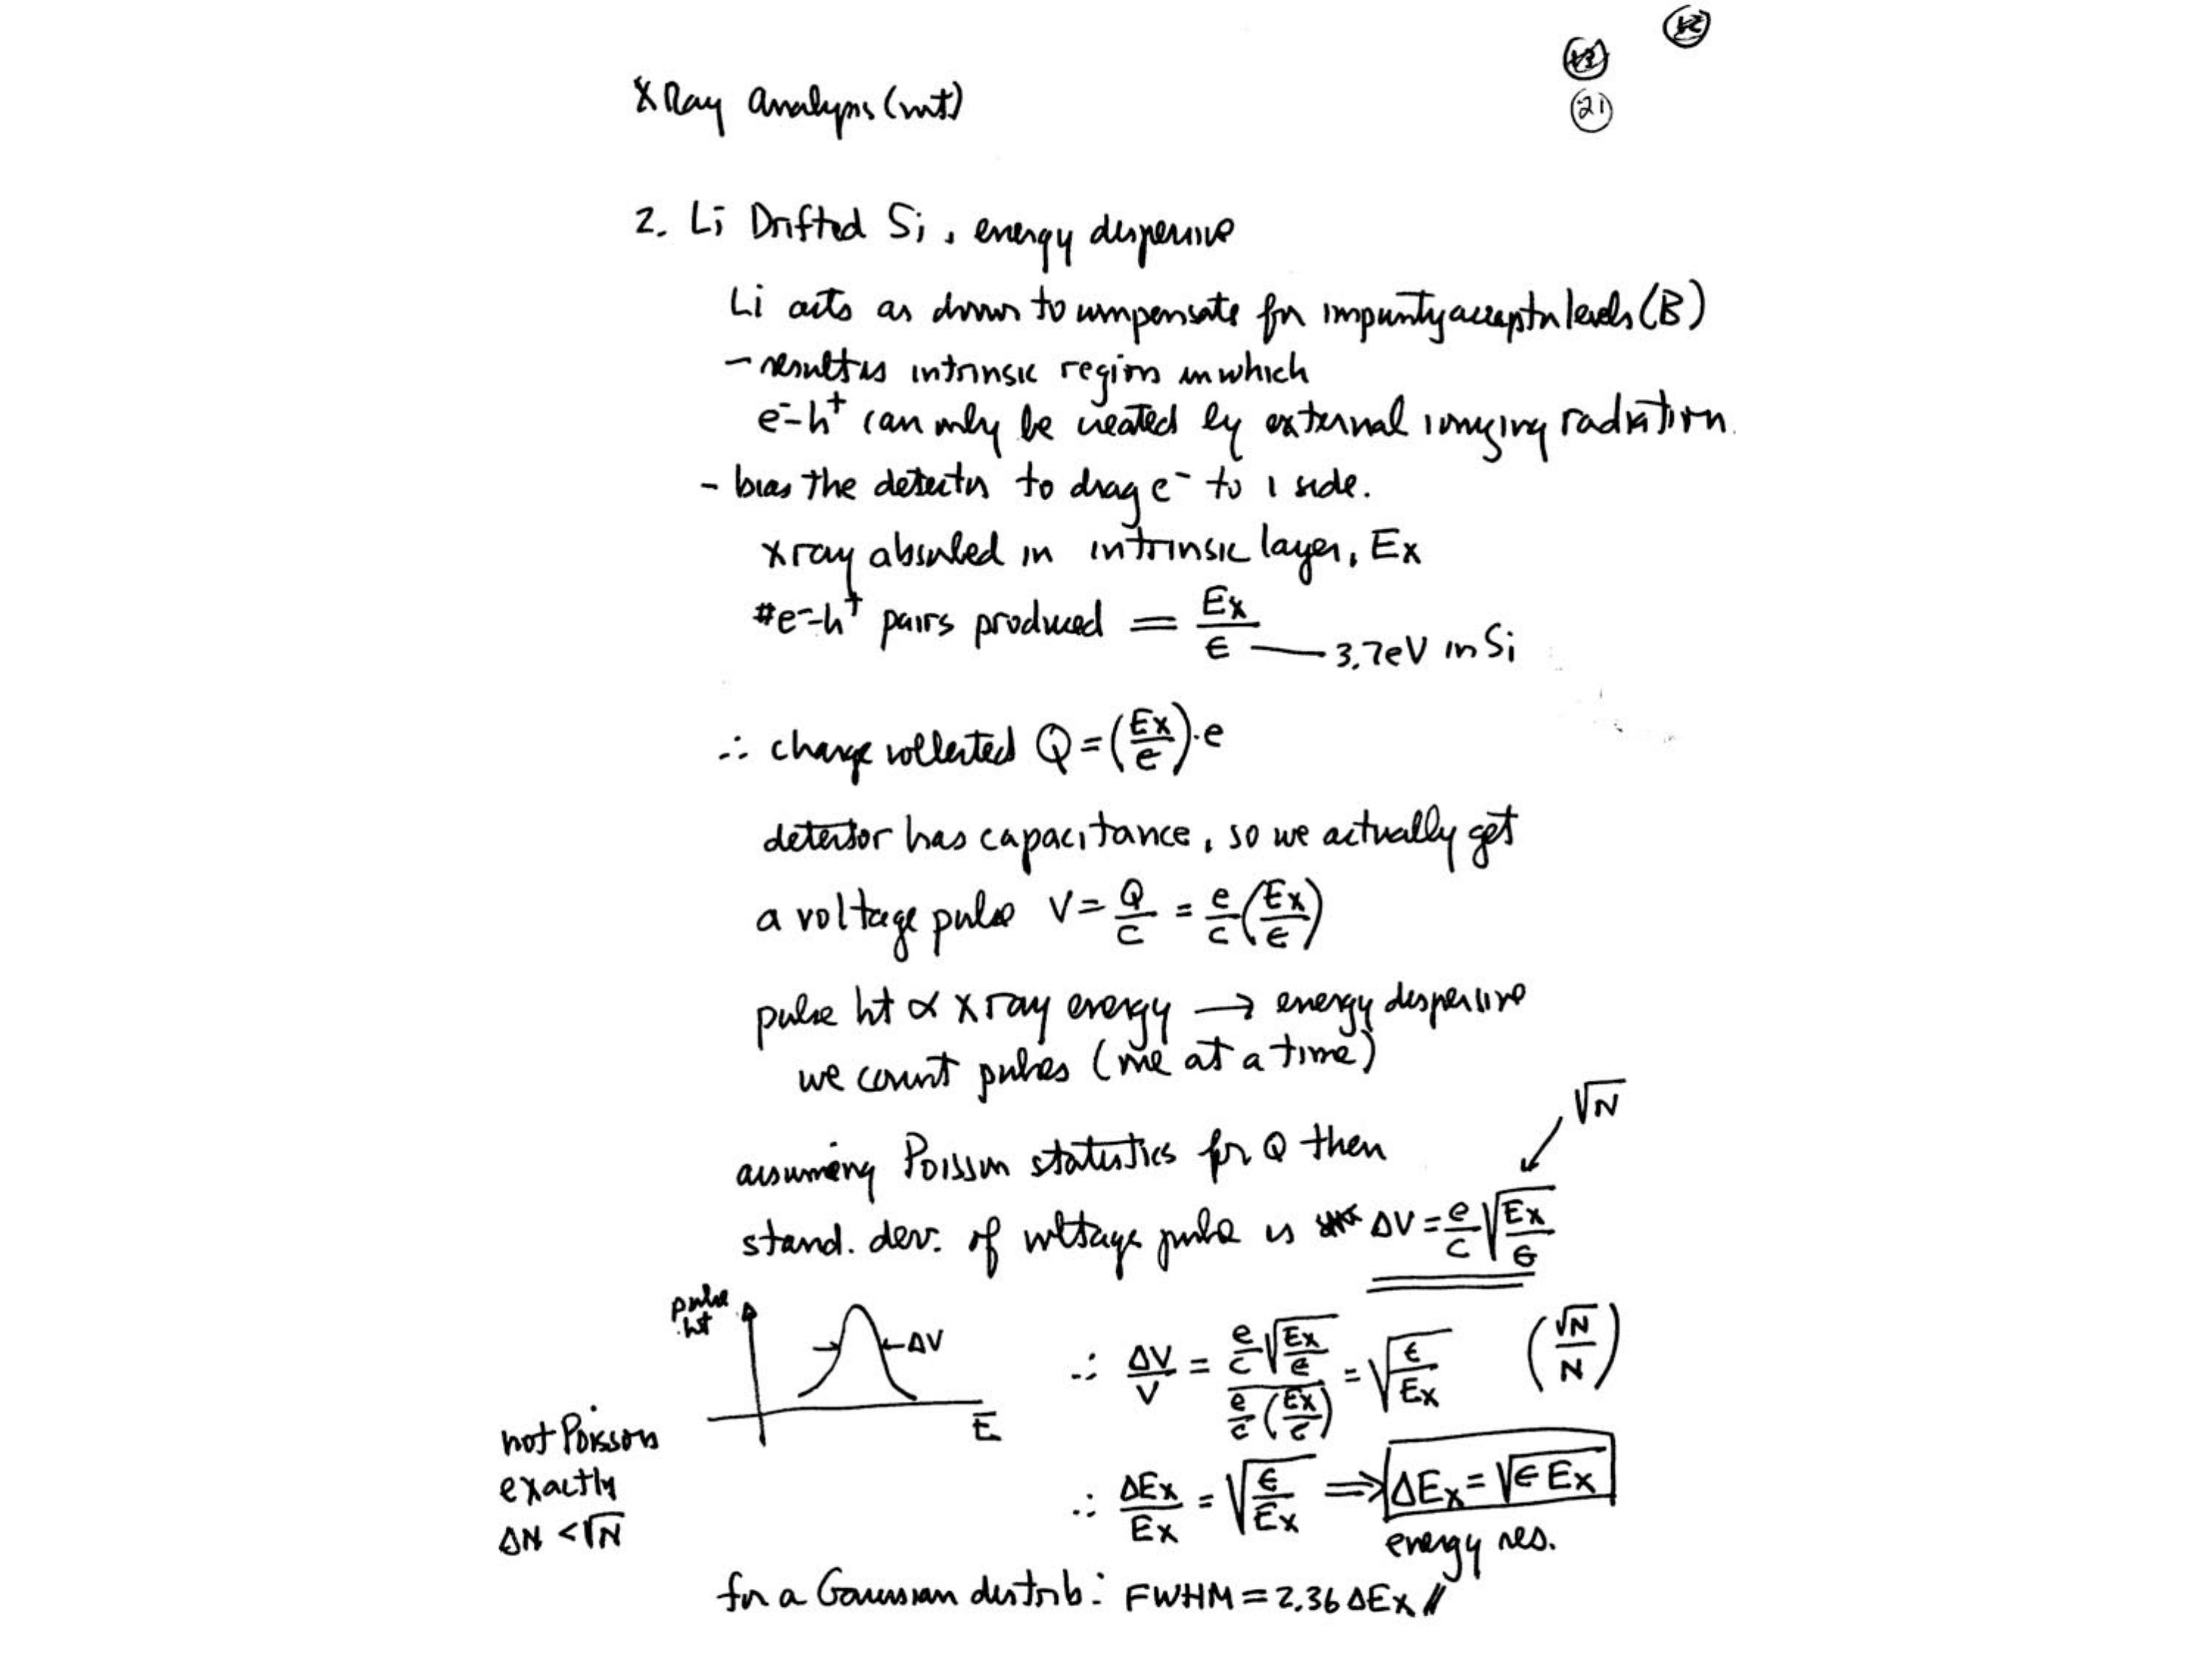 21
X Ray Analysis (cont)
2. Li Drifted Si, energy dispersive
Li acts as donor to compensate for impurity acceptor levels (B)
- result is intrinsic region in which
e⁻-h⁺ can only be created by external ionizing radiation.
- bias the detector to drag e⁻ to 1 side.
x ray absorbed in intrinsic layer, Ex
#e⁻-h⁺ pairs produced = Ex/ϵ — 3.7eV in Si
∴ charge collected Q = (Ex/ϵ)·e
detector has capacitance, so we actually get
a voltage pulse V = Q/C = e/C (Ex/ϵ)
pulse ht ∝ x ray energy → energy dispersive
we count pulses (one at a time)
√N
assuming Poisson statistics for Q then
stand. dev. of voltage pulse is ΔV = e/C √(Ex/ϵ)
pulse ht
ΔV
E
∴ ΔV/V = (e/C √(Ex/ϵ))/(e/C (Ex/ϵ)) = √(ϵ/Ex) (√N/N)
not Poisson
exactly
ΔN < √N
∴ ΔEx/Ex = √(ϵ/Ex) ⇒ ΔEx = √(ϵ Ex)
energy res.
for a Gaussian distrib: FWHM = 2.36 ΔEx //